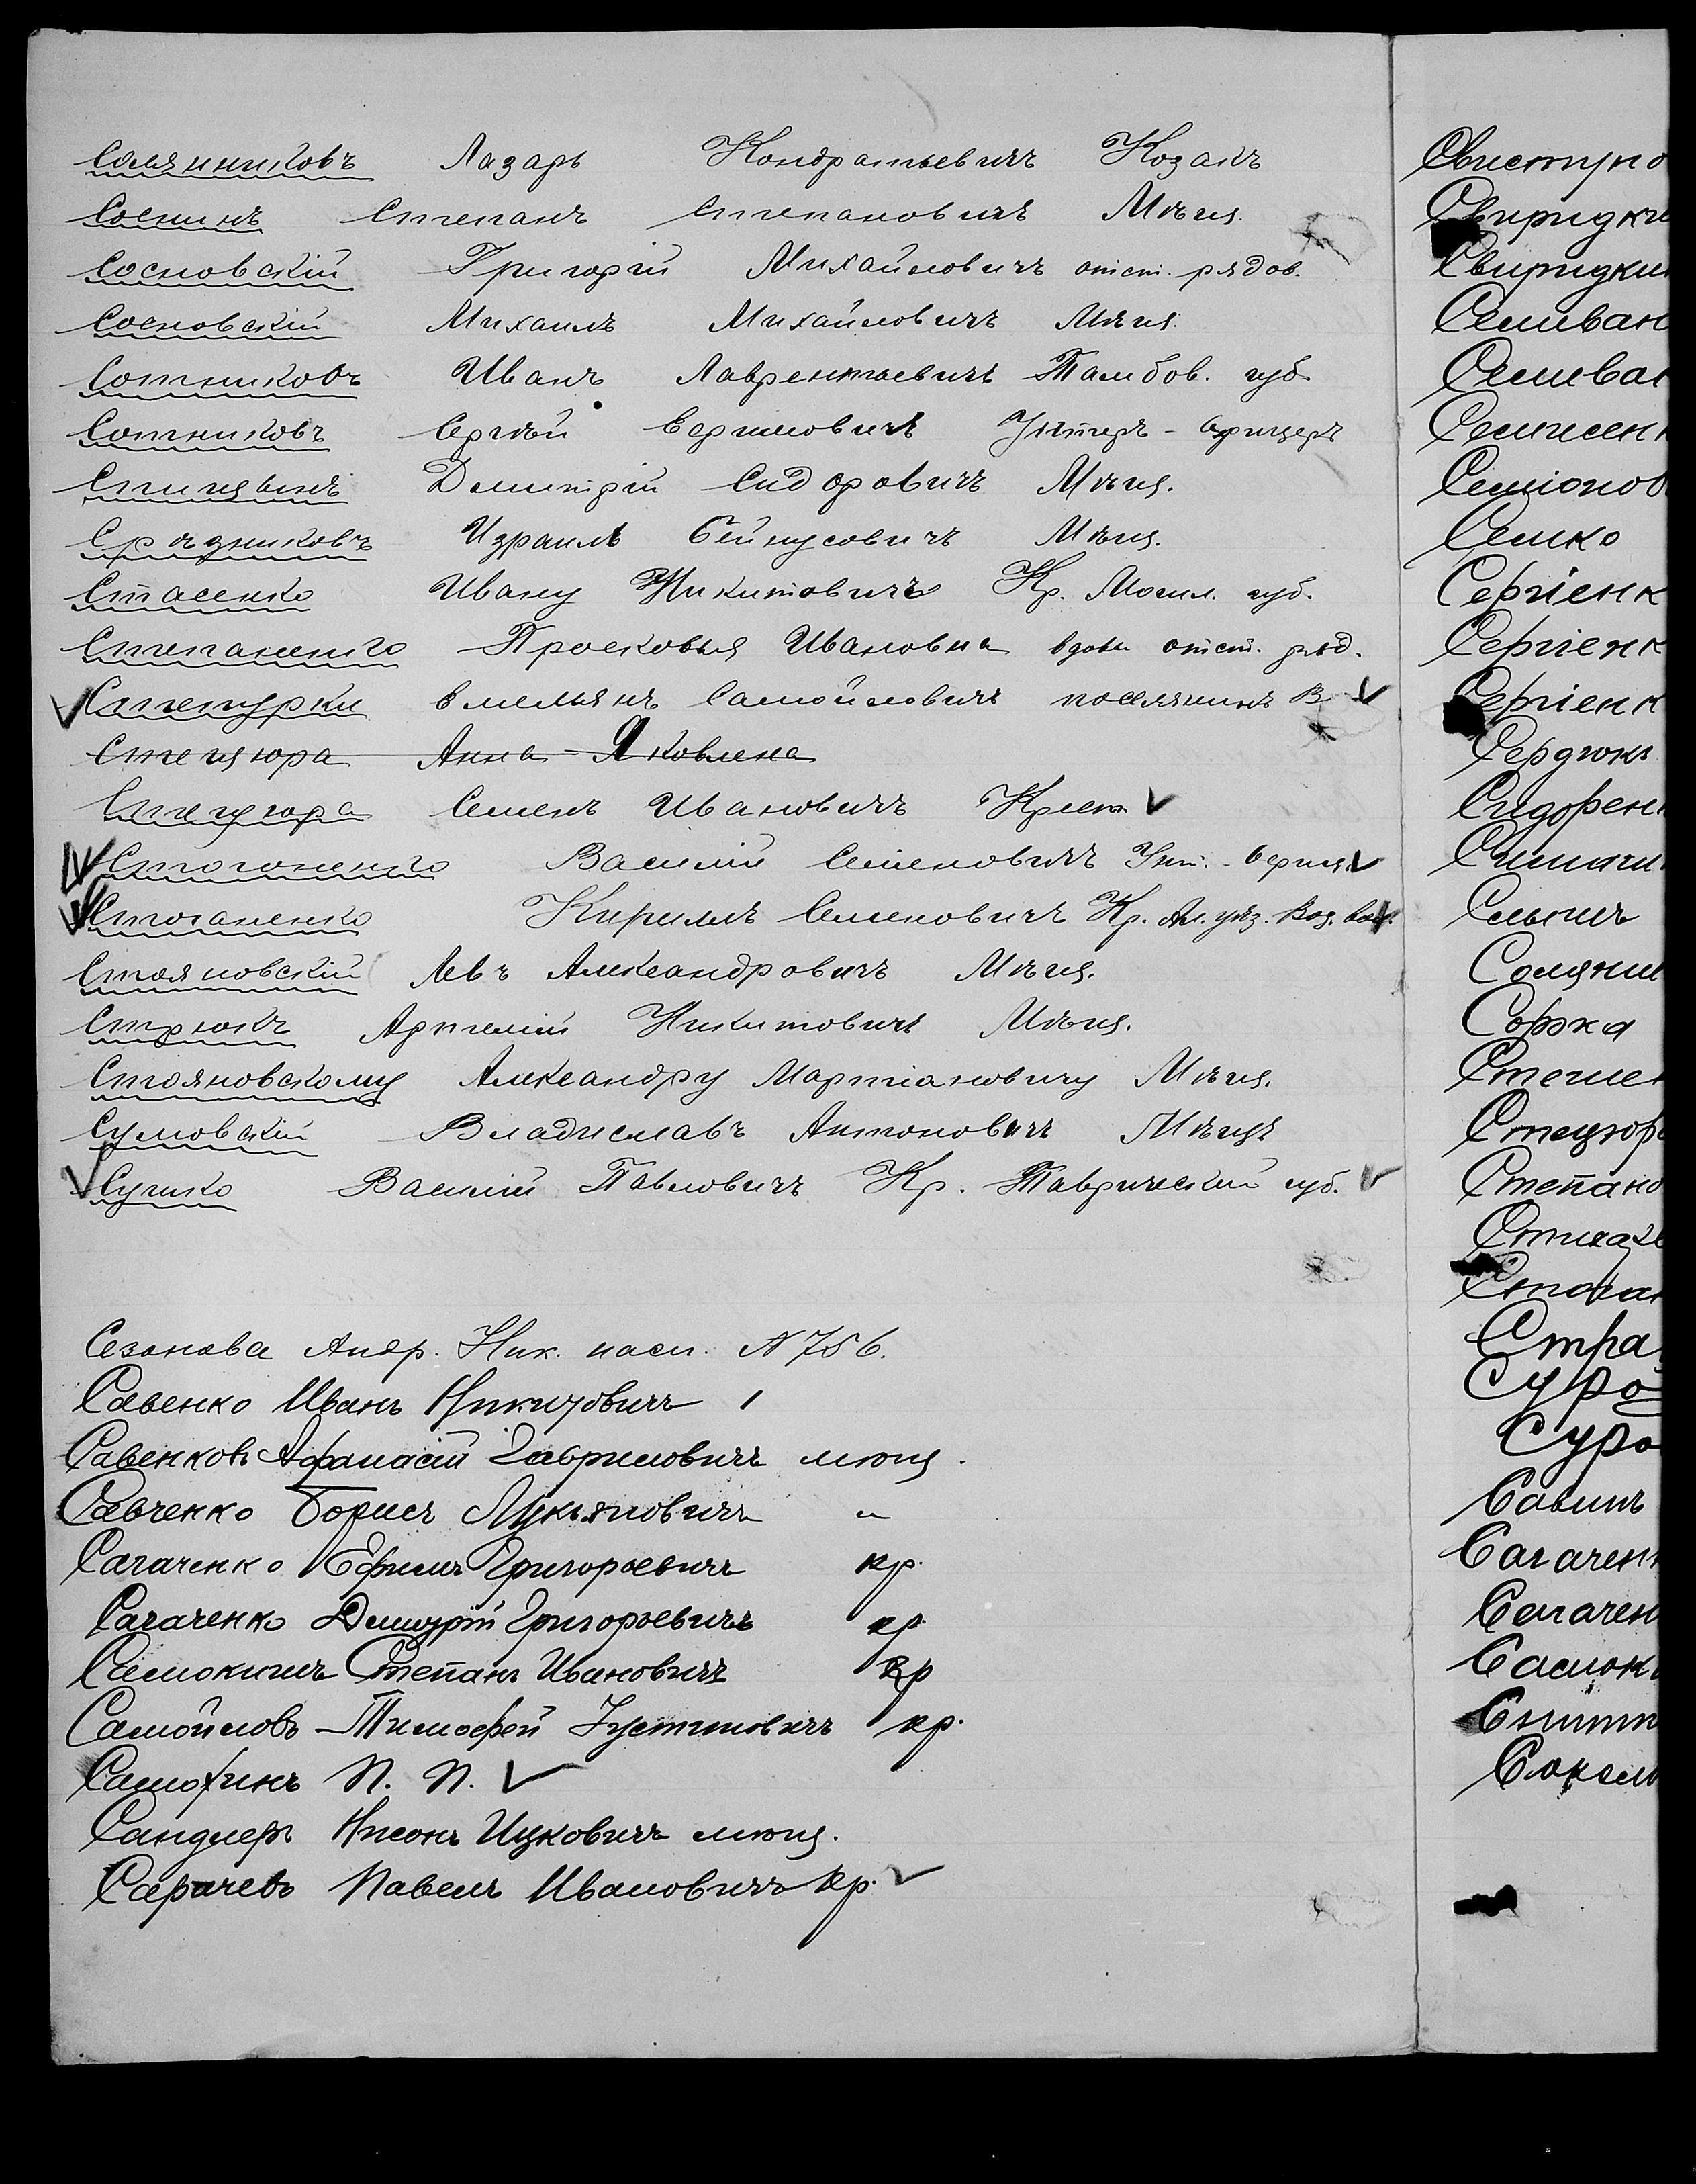 Соляниковъ Лазарь Кондратьевичъ Козакъ
Соснинъ Степанъ Степановичъ Мѣщ.
Сосновскій Григорій Михайловичъ отст. рядов.
Сосновскій Михаилъ Михайловичъ Мѣщ.
Сотниковъ Иванъ Лаврентьевичъ Тамбов. губ.
Сотниковъ Сергѣй Ефимовичъ Унтеръ-офицеръ
Спицынъ Дмитрій Сидоровичъ Мѣщ.
Израиль Бейнусовичъ Мѣщ.
Стасенко Ивану Никитовичъ Кр. Могил. губ.
Степаненко Просковья Ивановна вдова отст. ряд.
Емельянъ Самойловичъ поселянинъ В
Стецюра Анна Яковлена
Стецюра Семенъ Ивановичъ Крест.
Стогоненко Василій Семеновичъ Унт.-офиц.
Стоганенко Кирилъ Семеновичъ Кр. Ал. уѣз.
Стояновскій Левъ Александровичъ Мѣщ.
Стрюкъ Артемій Никитовичъ Мѣщ.
Стояновскому Александру Мартіановичу Мѣщ.
Сумовскій Владиславъ Антоновичъ Мѣщъ
Сушко Василій Павловичъ Кр. Таврической губ.
Сезонова Андр. Ник. насл. N 756.
Савенко Иванъ Никитовичъ
Савенковъ Афанасій Гавриловичъ мѣщ.
Савченко Борисъ Лукьяновичъ "
Сагаченко Ефимъ Григорьевичъ кр.
Сагаченко Дмитрій Григорьевичъ кр.
Самокишъ Степанъ Ивановичъ кр
Самойловъ Тимофей Устиновичъ кр.
Самохинъ П. П.
Сандлеръ Нисонъ Ицковичъ мѣщ.
Сарачевъ Павелъ Ивановичъ кр.
Свистуно
Свиридки
Свиридкин
Селиван
Селиван
Семисен
Семіонов
Семко
Сергіенк
Сергіенк
Сергіенк
Сердюкъ
Сидорен
Солянин
Сорка
Стецюр
Степано
Стра
Суро
Суро
Савинъ
Сагаченк
Сагачен
Самок